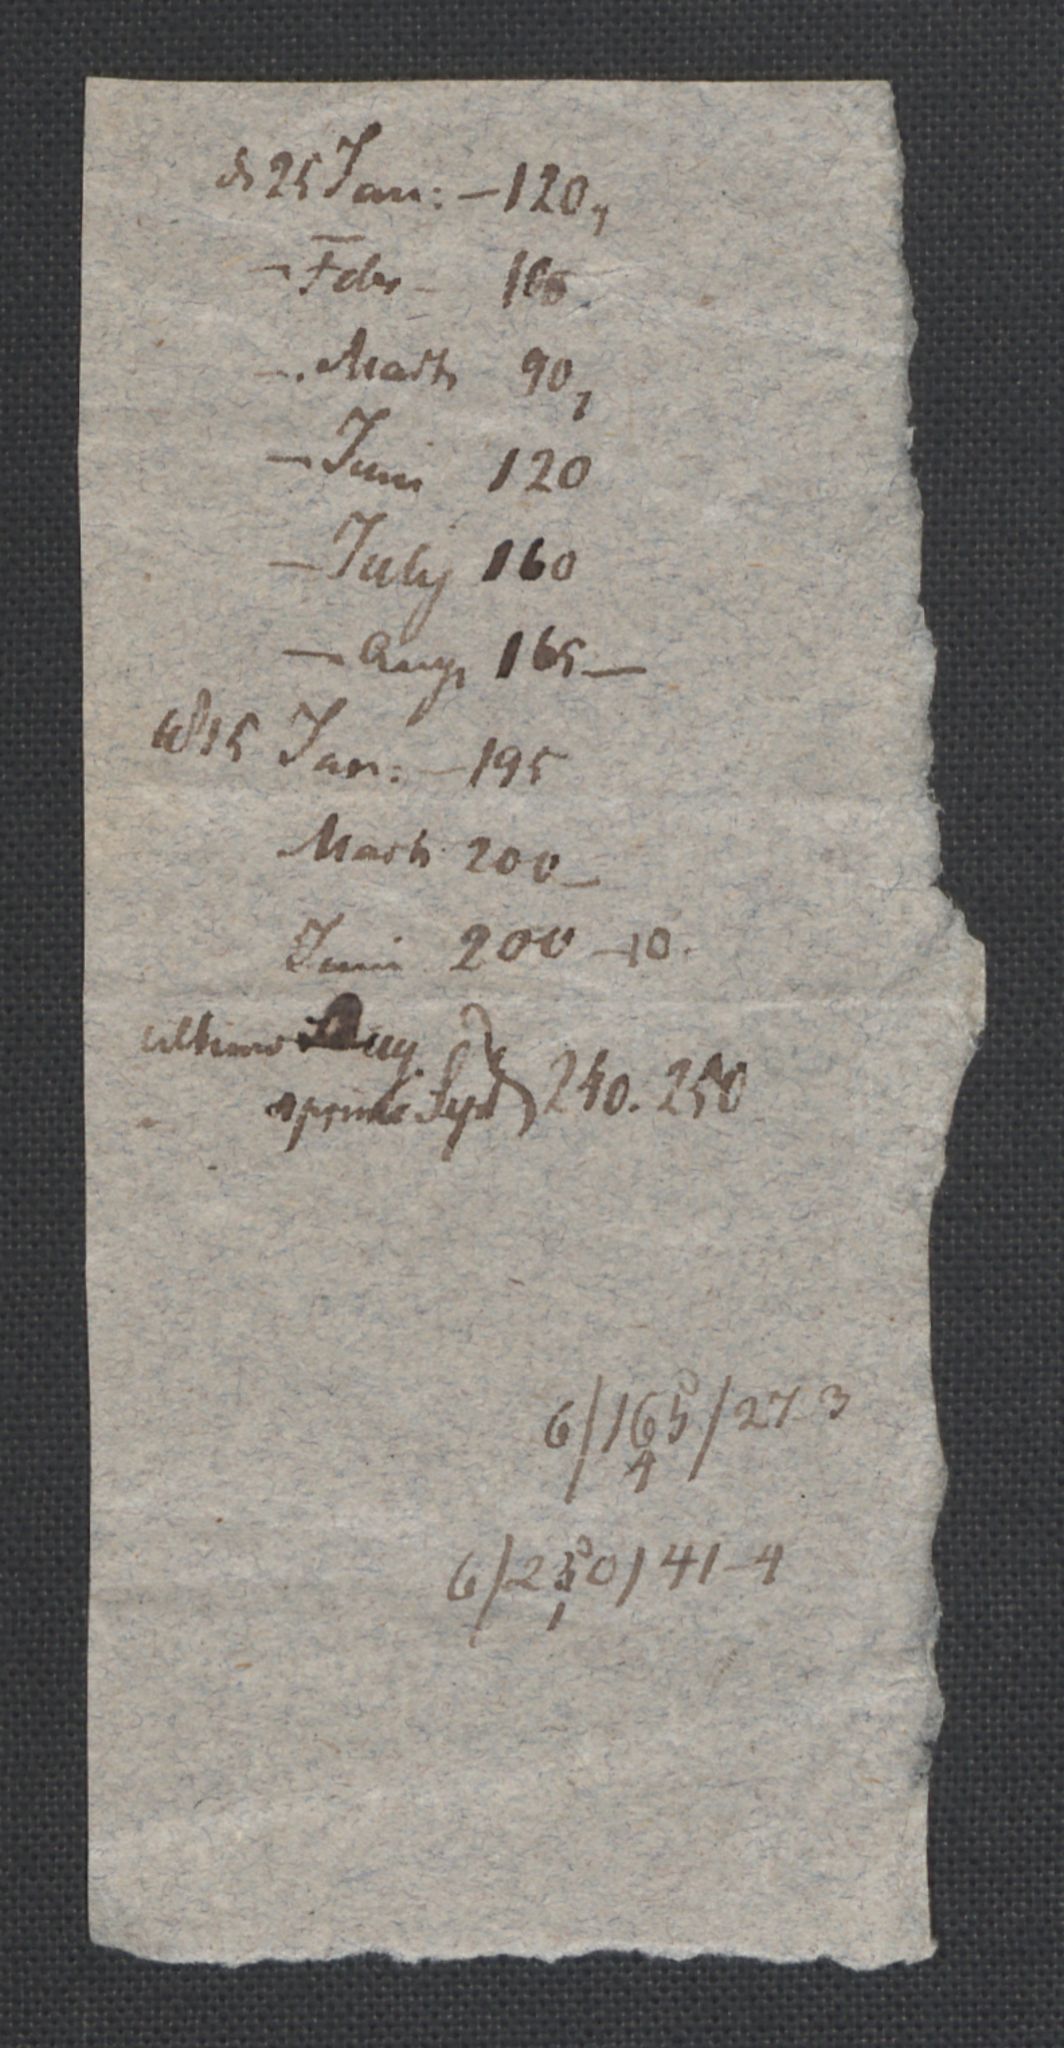 d 25 Jan: - 120,
- Febr - 16
-. Marts 90,
- Juni 120
- July 160
- Aug, 165 -
1815 Jan: - 195
Marts 200 -
Juni 200 - 10.
ultimo Aug.
primo Sept } 240. 250
6/165/27 3
4
6/250/41-4
1